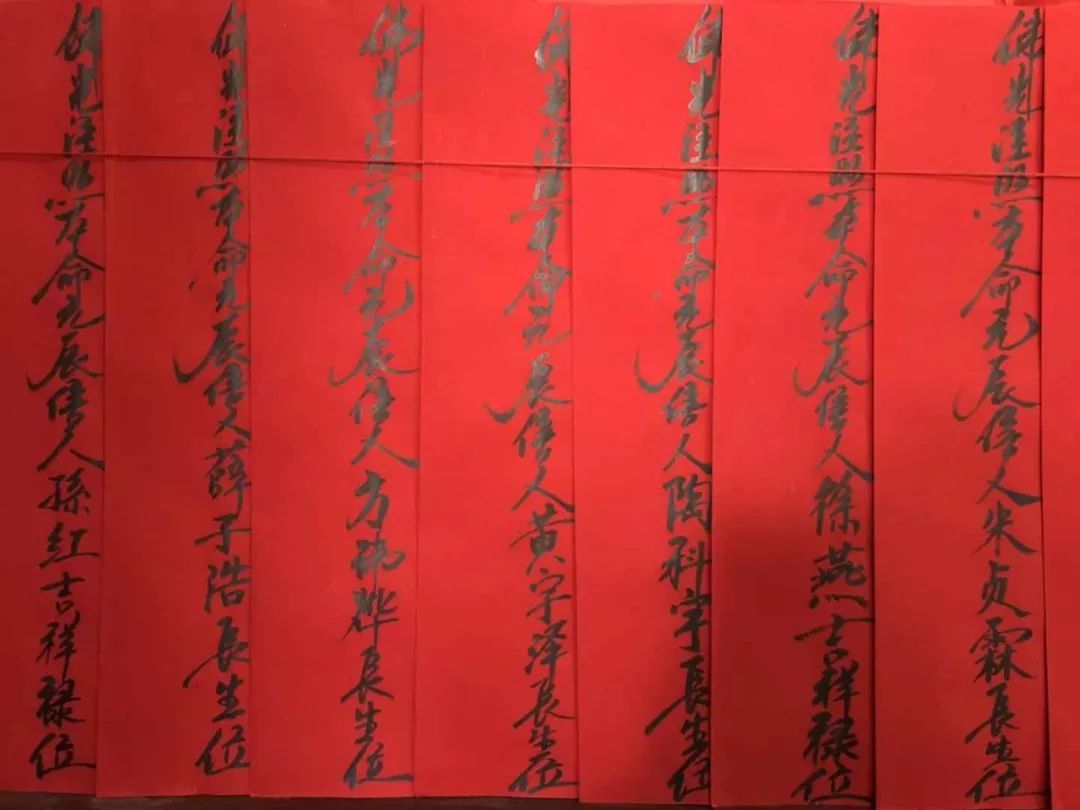 佛光注照本命元辰信人朱贞霖長生位
佛光注照本命元辰信人徐燕吉祥禄位
佛光注照本命元辰信人陶科宇長生位
佛光注照本命元辰信人黄宇泽長生位
佛光注照本命元辰信人方長生位
佛光注照本命元辰信人薛子浩長生位
佛光注照本命元辰信人孫红吉祥禄位